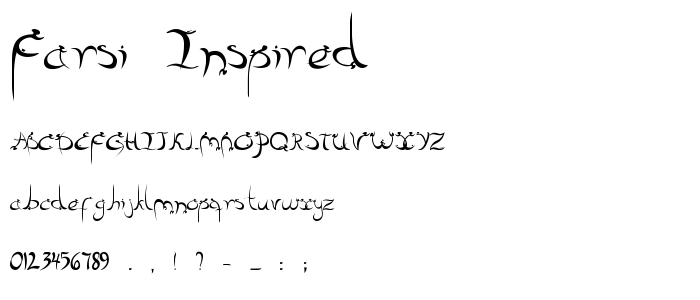 Farsi Inspired
ABCDEFGHIJKLMNOPQRSTUVWXYZ
abcdefghijklmnopqrstuvwxyz
0123456789 . , ! ? - _ : ;